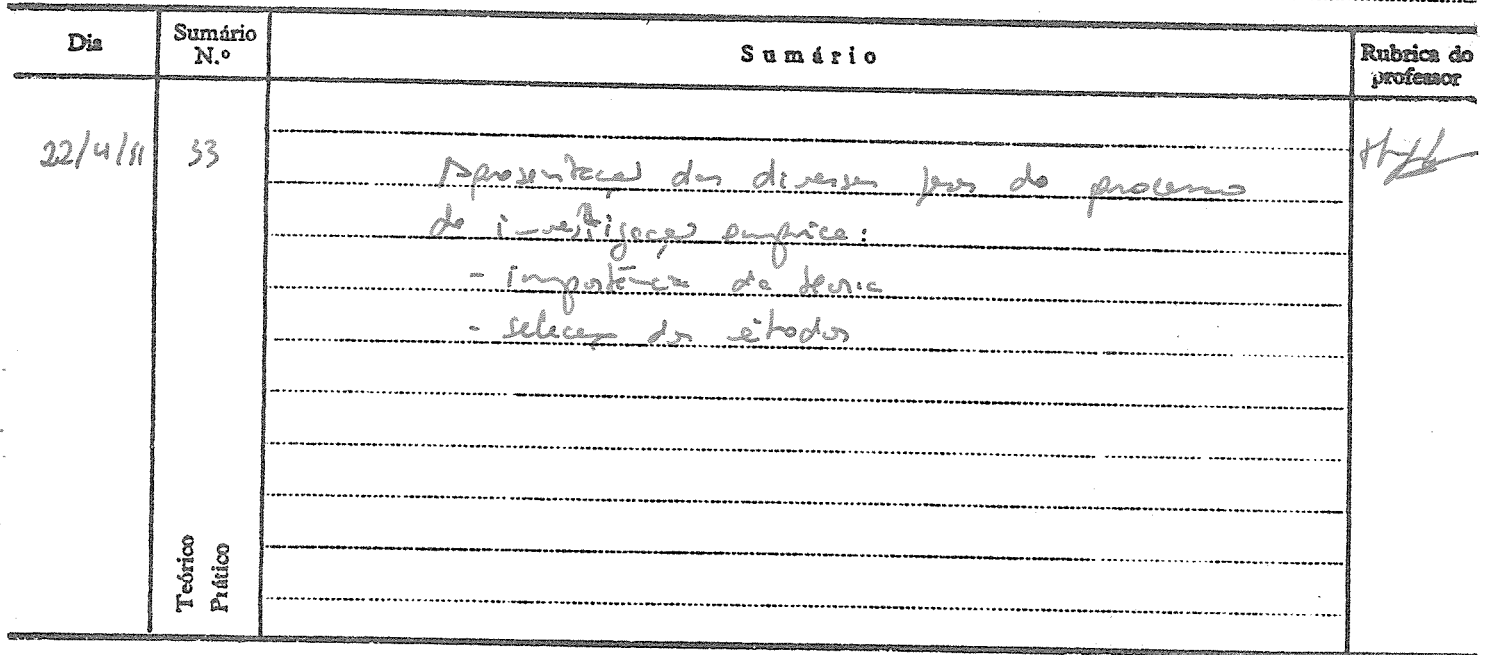 Dia
Sumário N.º
Sumário
Rubrica do professor
22/4/11
33
Apresentação das diversas fases do processo
de investigação empírica:
- importância da teoria
- selecção dos métodos
Teórico
Prático